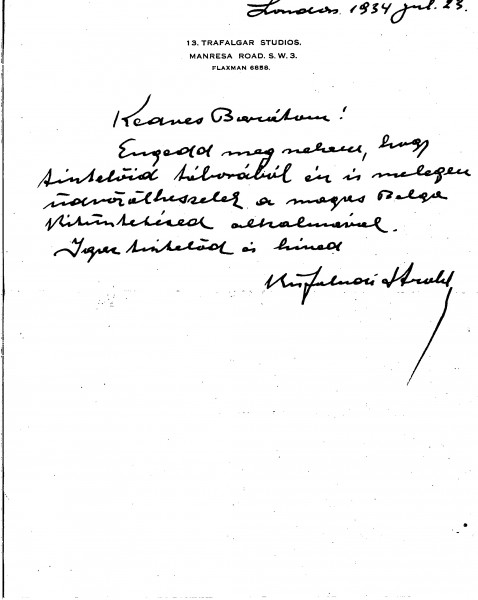 London 1934 jul. 23.
13, TRAFALGAR STUDIOS,
MANRESA ROAD, S.W.3.
FLAXMAN 6688.
Kedves Barátom!
Engedd meg nekem, hogy
tisztelőid táborából én is melegen
üdvözölhesselek a magas Belga
kitüntetésed alkalmával.
Igaz tisztelőd és híved